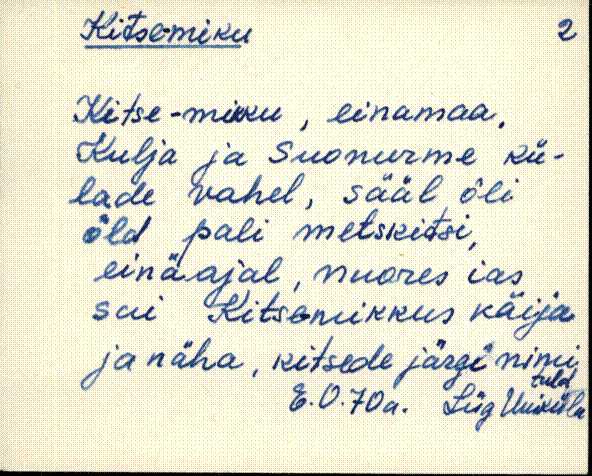 Kitse-miku 2
Kitse-miku, einamaa,
Kulja ja Suonurme kü-
lade vahel, sääl õli
õld pali metskitsi,
einäajal, nuores ias
sai Kitsemikkus käija
ja näha, kitsede järgi nimi
tuld
E. O. 70a. Liig Uniküla